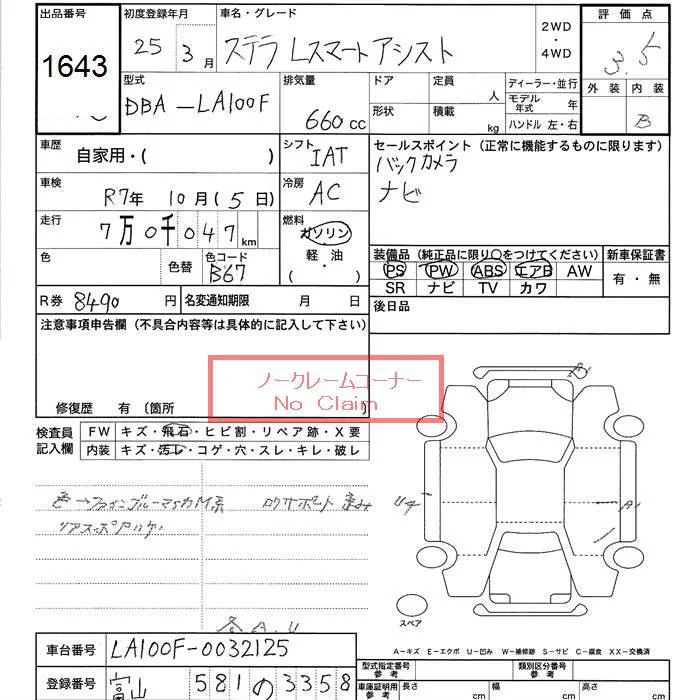 出品番号 初度登録年月 車名・グレード 2WD ・ 4WD 評価点
1643 25年 3月 ステラ Lスマートアシスト 3.5
型式 排気量 ドア 定員 人 ディーラー・並行 外装 内装
DBA-LA100F 660cc 形状 積載 kg モデル年式 年 B
ハンドル 左・右
車歴 自家用・( ) シフト IAT セールスポイント (正常に機能するものに限ります)
バックカメラ
車検 R7年 10月(5日) 冷房 AC ナビ
走行 7万0千047km 燃料 ガソリン 軽油 ・ ( )
色 色替 色コード B67 装備品 (純正品に限り○をつけてください) 新車保証書
PS PW ABS エアB AW 有・無
SR ナビ TV カワ
R券 8490円 名変通知期限 月 日 後日品
注意事項申告欄 (不具合内容等は具体的に記入して下さい)
ノークレームコーナー
No Claim
修復歴 有 〔箇所 〕
検査員記入欄 FW キズ・飛石・ヒビ割・リペア跡・X要
内装 キズ・汚レ・コゲ・穴・スレ・キレ・破レ
色→
スペア
A-キズ E-エクボ U-凹み W-補修跡 S-サビ C-腐食 XX-交換済
車台番号 LA100F-0032125
型式指定番号 参考 類別区分番号 参考
登録番号 富山 581 の 3358
車庫証明用 参考 長さ cm 幅 cm 高さ cm